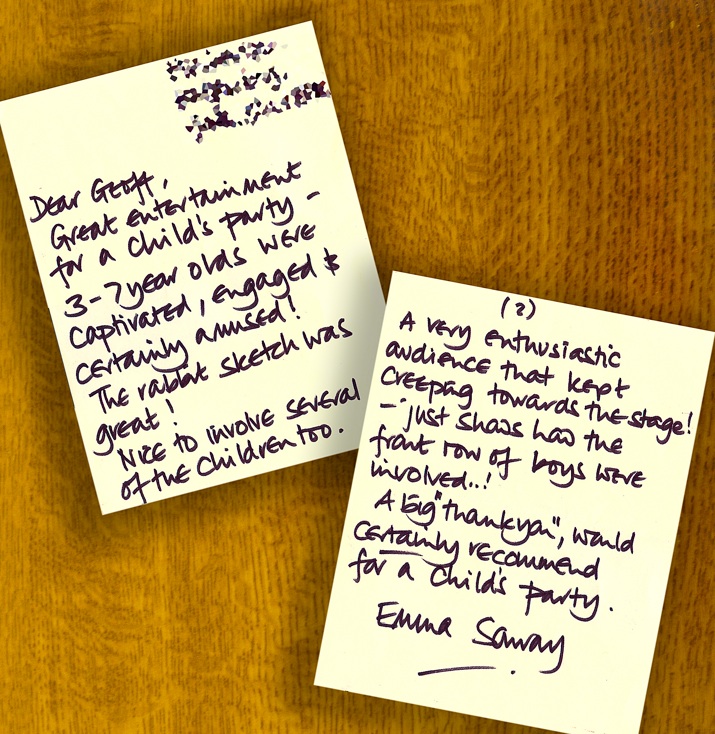 Dear Geoff,
Great entertainment
for a child's party -
3-7 year olds were
captivated, engaged &
certainly amused!
The rabbit sketch was
great!
Nice to involve several
of the children too.
(2)
A very enthusiastic
audience that kept
creeping towards the stage!
- just shows how the
front row of boys were
involved..!
A big "thankyou", would
certainly recommend
for a child's party.
Emma